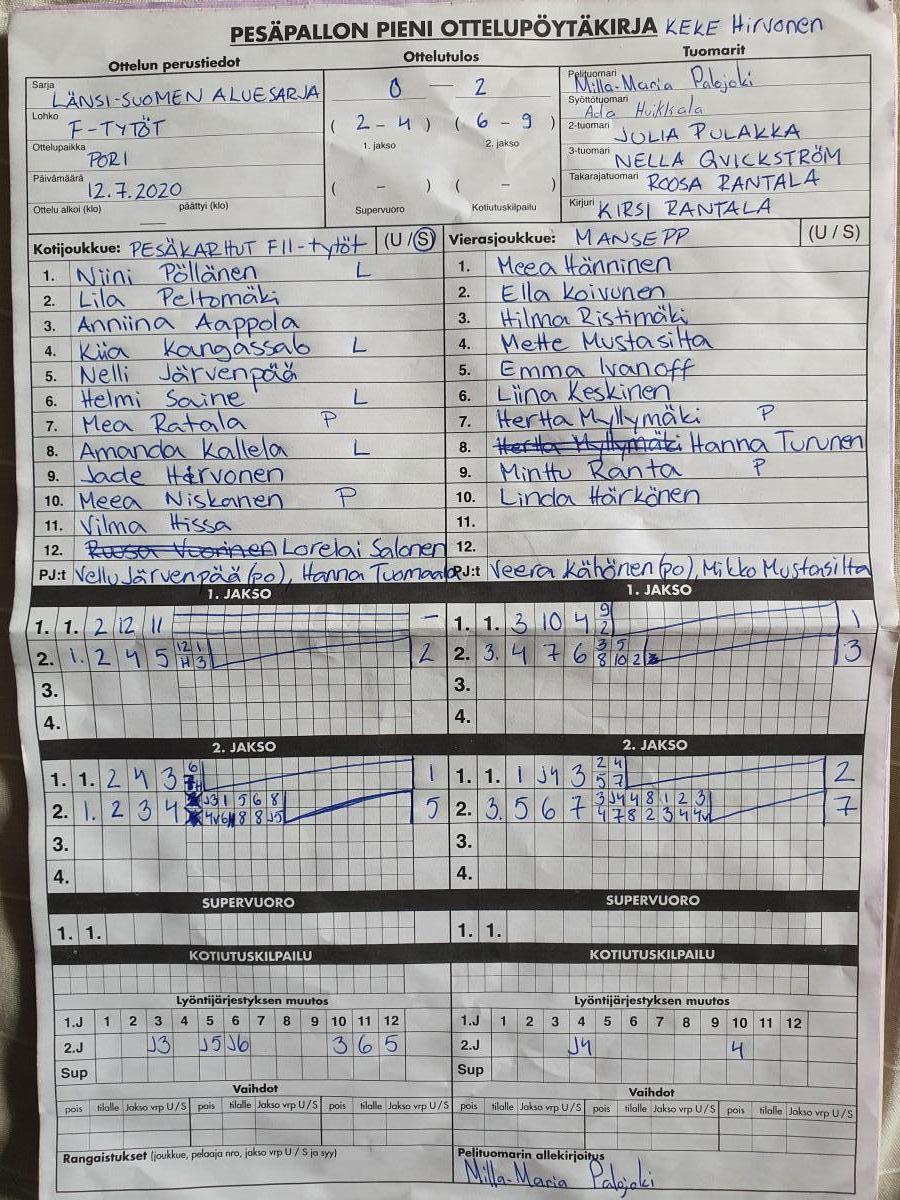 PESÄPALLON PIENI OTTELUPÖYTÄKIRJA KEKE Hirvonen
Ottelun perustiedot Ottelutulos Tuomarit
Sarja LÄNSI-SUOMEN ALUESARJA
Lohko F-TYTÖT
Ottelupaikka PORI
Päivämäärä 12.7.2020
Ottelu alkoi (klo) päättyi (klo)
0 — 2
( 2 - 4 ) ( 6 - 9 )
1. jakso 2. jakso
( - ) ( - )
Supervuoro Kotiutuskilpailu
Pelituomari Milla-Maria Palojoki
Syöttötuomari Ada Huikkala
2-tuomari JULIA PULAKKA
3-tuomari NELLA QVICKSTRÖM
Takarajatuomari ROOSA RANTALA
Kirjuri KIRSI RANTALA
Kotijoukkue: PESÄKARHUT FII-tytöt (U / S)
1. Niini Pöllänen L
2. Lila Peltomäki
3. Anniina Aappola
4. Kiia Kangassalo L
5. Nelli Järvenpää
6. Helmi Saine L
7. Mea Ratala P
8. Amanda Kallela L
9. Jade Hirvonen
10. Meea Niskanen P
11. Vilma Hissa
12. Lorelai Salonen
PJ:t Vellu Järvenpää (po), Hanna Tuomaala
Vierasjoukkue: MANSEPP (U / S)
1. Meea Hänninen
2. Ella Koivunen
3. Hilma Ristimäki
4. Mette Mustasilta
5. Emma Ivanoff
6. Liina Keskinen
7. Hertta Myllymäki P
8. Hertta Myllymäki Hanna Turunen
9. Minttu Ranta P
10. Linda Härkönen
11.
12.
PJ:t Veera Kähönen (po), Mikko Mustasilta
1. JAKSO 1. JAKSO
1. 1. 2 12 11 – 1. 1. 3 10 4 9 2 1
2. 1. 2 4 5 12 1 H 3 2 2. 3. 4 7 6 3 5 8 10 2 3
3. 3.
4. 4.
2. JAKSO 2. JAKSO
1. 1. 2 4 3 6 1 1. 1. 1 J4 3 2 4 5 7 2
2. 1. 2 3 4 J3 1 5 6 8 8 8 J5 5 2. 3. 5 6 7 3 J4 4 8 1 2 3 4 7 8 2 3 4 4v 7
3. 3.
4. 4.
SUPERVUORO SUPERVUORO
1. 1. 1. 1.
KOTIUTUSKILPAILU KOTIUTUSKILPAILU
Lyöntijärjestyksen muutos Lyöntijärjestyksen muutos
1.J 1 2 3 4 5 6 7 8 9 10 11 12 1.J 1 2 3 4 5 6 7 8 9 10 11 12
2.J J3 J5 J6 3 6 5 2.J J4 4
Sup Sup
Vaihdot Vaihdot
pois tilalle Jakso vrp U / S pois tilalle Jakso vrp U / S pois tilalle Jakso vrp U / S pois tilalle Jakso vrp U / S pois tilalle Jakso vrp U / S pois tilalle Jakso vrp U / S
Rangaistukset (joukkue, pelaaja nro, jakso vrp U / S ja syy) Pelituomarin allekirjoitus
Milla-Maria Palojoki